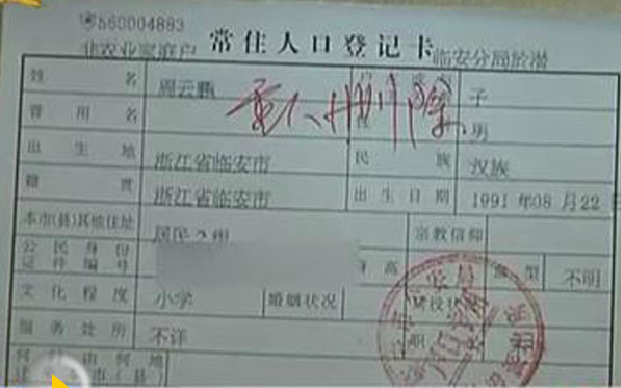 560004883
非农业家庭户 常住人口登记卡 临安分局於潜
姓名 周云鹏 子
重人删除
曾用名 明
出生地 浙江省临安市 民族 汉族
籍贯 浙江省临安市 出生日期 1991年08月22
本市(县)其他住址 居民 宗教信仰
公民身份证件编号 身高 血型 不明
文化程度 小学 婚姻状况 兵役状况
服务处所 不详 职
何时由何地